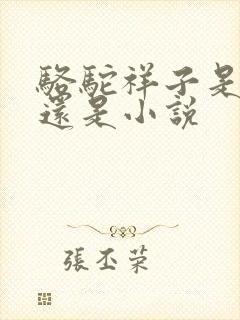 駱駝祥子是
還是小説
張丕荣